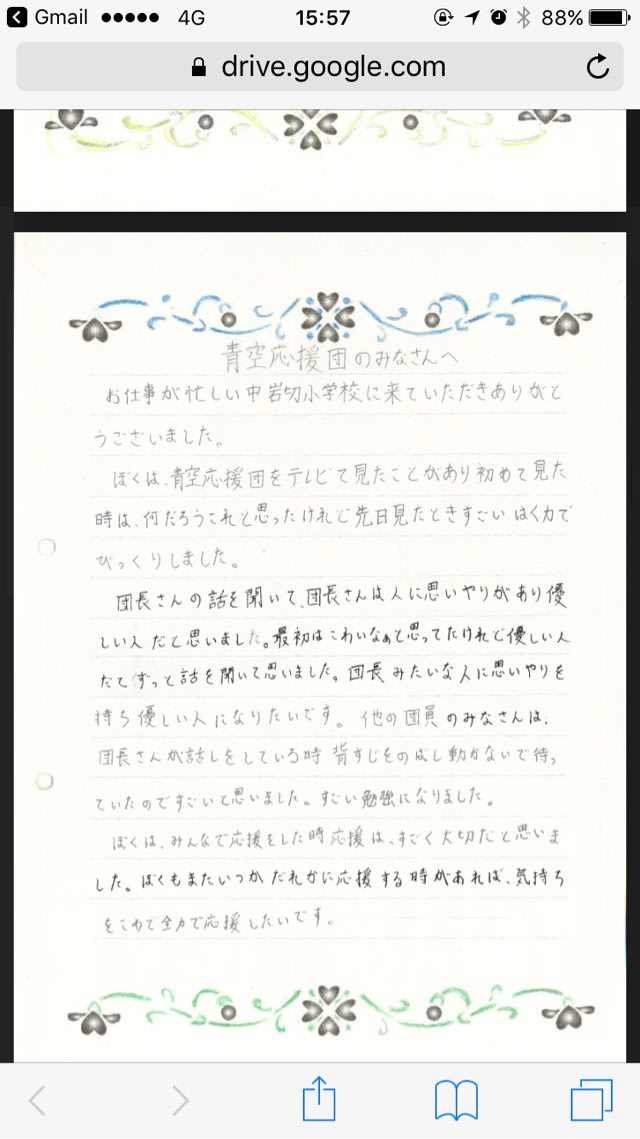 Gmail 4G 15:57 88%
drive.google.com
青空応援団のみなさんへ
お仕事が忙しい中岩切小学校に来ていただきありがと
うございました。
ぼくは、青空応援団をテレビで見たことがあり初めて見た
時は、何だろうこれと思ったけれど先日見たときすごいはく力で
びっくりしました。
団長さんの話を聞いて、団長さんは人に思いやりがあり優
しい人だと思いました。最初はこわいなぁと思ってたけれど優しい人
だとずっと話を聞いて思いました。団長みたいな人に思いやりを
持ち優しい人になりたいです。他の団員のみなさんは、
団長さんが話しをしている時背すじをのばし動かないで待っ
ていたのですごいと思いました。すごい勉強になりました。
ぼくは、みんなで応援をした時応援は、すごく大切だと思いま
した。ぼくもまたいつかだれかに応援する時があれば、気持ち
をこめて全力で応援したいです。